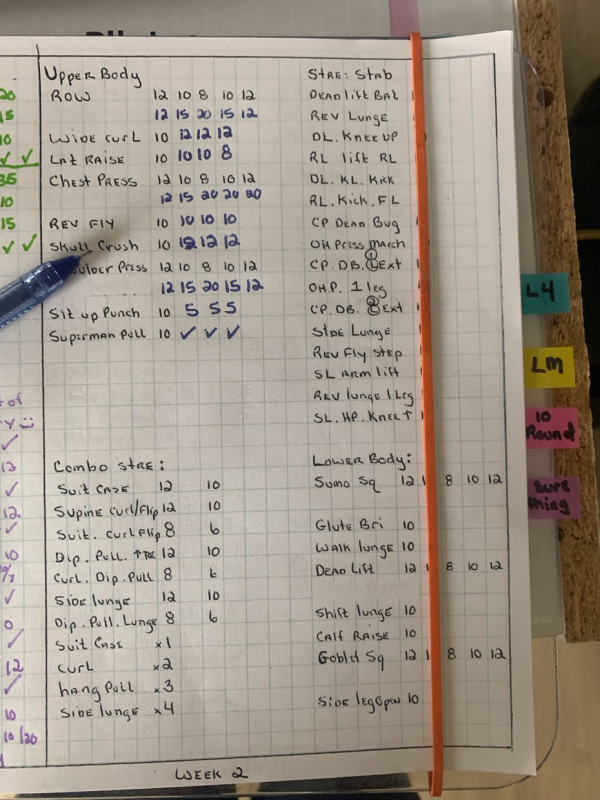 Upper Body
Row 12 10 8 10 12
12 15 20 15 12
Wide curl 10 12 12 12
Lat Raise 10 10 10 8
Chest Press 12 10 8 10 12
12 15 20 20 20
Rev Fly 10 10 10 10
Skull Crush 10 12 12 12
Press 12 10 8 10 12
12 15 20 15 12
Sit up Punch 10 5 5 5
Superman Pull 10 ✓ ✓ ✓
Combo Stre:
Suit Case 12 10
Supine curl/flip 12 10
Suit. curl flip 8 6
Dip. Pull. 12 10
Curl. Dip. Pull 8 6
Side lunge 12 10
Dip. Pull. Lunge 8 6
Suit Case x1
Curl x2
hang Pull x3
Side lunge x4
Stre: Stab
Dead lift Bal
Rev Lunge
DL. Knee up
RL lift RL
DL. KL. Kick
RL. Kick. FL
CP Dead Bug
OH Press march
CP. DB. ① Ext
O.H.P. 1 leg
CP. DB. ② Ext
Side Lunge
Rev Fly Step
SL Arm lift
Rev lunge 1 Leg
SL. HP. Knee ↑
Lower Body:
Sumo Sq 12 8 10 12
Glute Bri 10
Walk lunge 10
Dead Lift 12 8 10 12
Shift lunge 10
Calf Raise 10
Gobld Sq 12 8 10 12
Side leg Open 10
Week 2
L4
LM
10 Round
thing
20
15
10
✓ ✓
35
10
15
✓ ✓
of
✓
12
✓
12
✓
10
✓
0
✓
12
✓
10
10/20